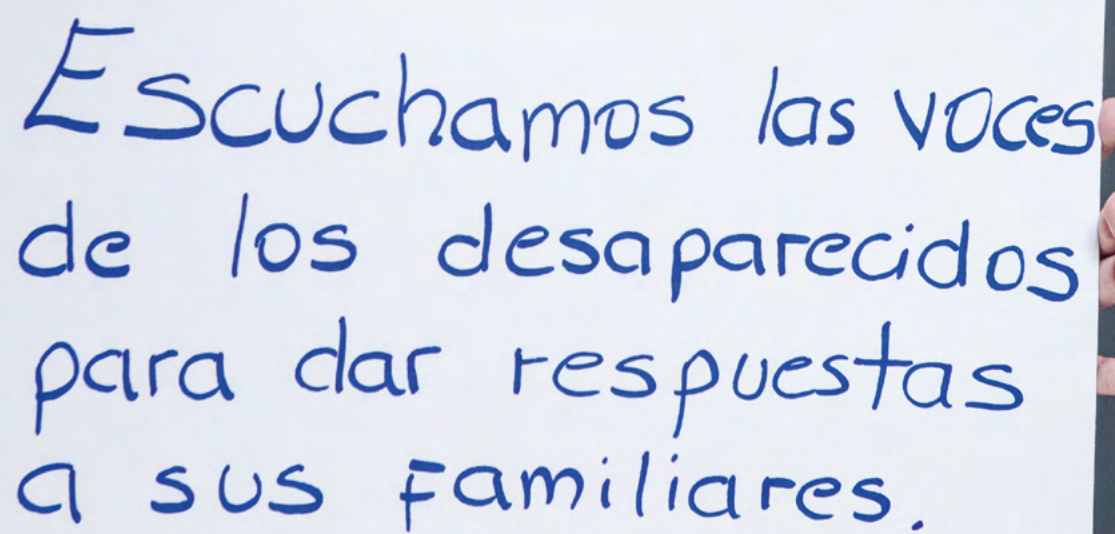 Escuchamos las voces
de los desaparecidos
para dar respuestas
a sus familiares.